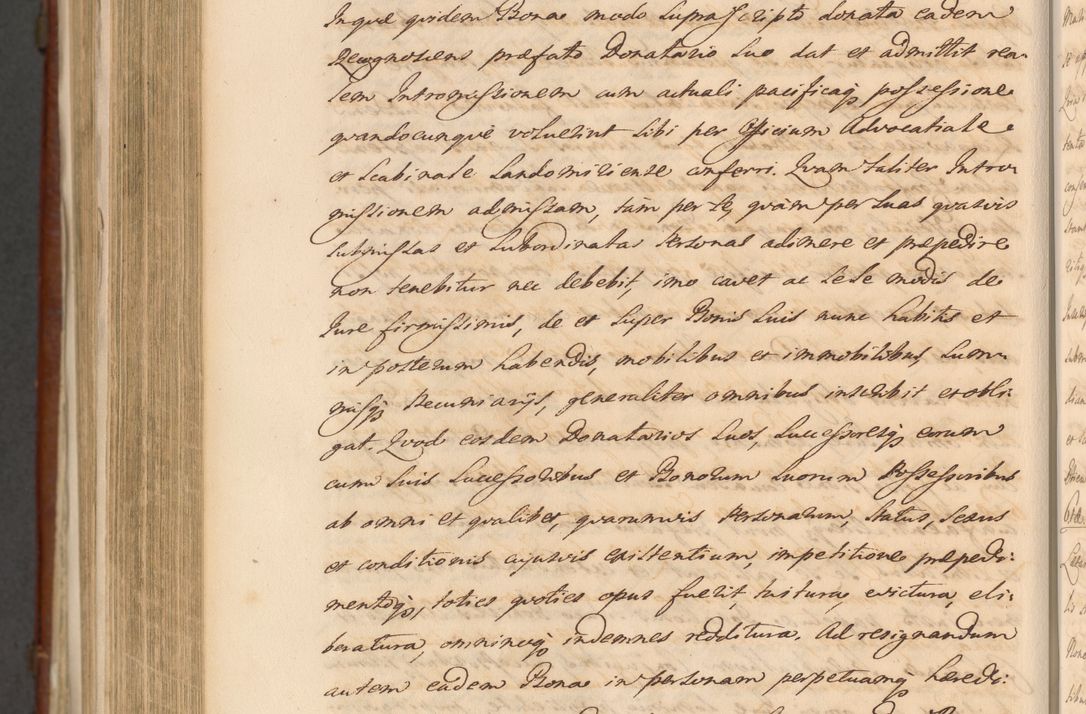 Inque quidem Bona modo suprascripto donata eadem
Recognoscens præfato Donatario suo dat et admittit rea-
lem Intromissionem cum actuali pacificaq3 possessione
quandocunque voluerint sibi per Officium Advocatiale
et Scabinale Sandomiriense conferri. Quam taliter Intro-
missionem admissam, tàm per se, quàm per suas quasvis
submissas et subordinatas Personas adimere et præpedire
non tenebitur nec debebit, imo cavet ac sese modis de
Jure firmissimis, de et super Bonis suis nunc habitis et
in posterum habendis, mobilibus et immobilibus, Sum-
misq3 Pecuniarijs, generaliter omnibus inscribit et obli:
gat. Quod eosdem Donatarios suos, Successoresq3 eorum
cum suis Successoribus et Bonorum suorum Possessoribus
ab omni et qualibet, quarumvis Personarum, Status, Sexus
et conditionis cujusvis existentium, impetitione præpedi:
mentoq3, toties quoties opus fuerit, tuitura, evictura, eli:
beratura, omninoq3 indemnes redditura. Ad resignandum
autem eadem Bona in personam perpetuamq3 hæredi: